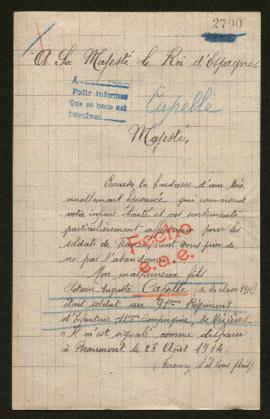 2790
A Sa Majesté le Roi d'Espagne
A
Pedir informes
Que se hace saber
Devolver
Capelle
Majesté,
Excusez la hardiesse d'une
cruellement éprouvée qui connaissant
votre infinie bonté et vos sentiments
particulièrement affectueux pour les
soldats de France, vient vous prier de
ne pas l'abandonner.
Fecho
e.a.e.
Mon malheureux fils
Auguste Capelle (de la classe 1910)
était soldat au 91ème Régiment
d'Infanterie 11ème Compagnie, de Mézières.
Il m'est signalé comme disparu
à Beaumont le 28 Août 1914.
(Tournez s'il vous plaît)